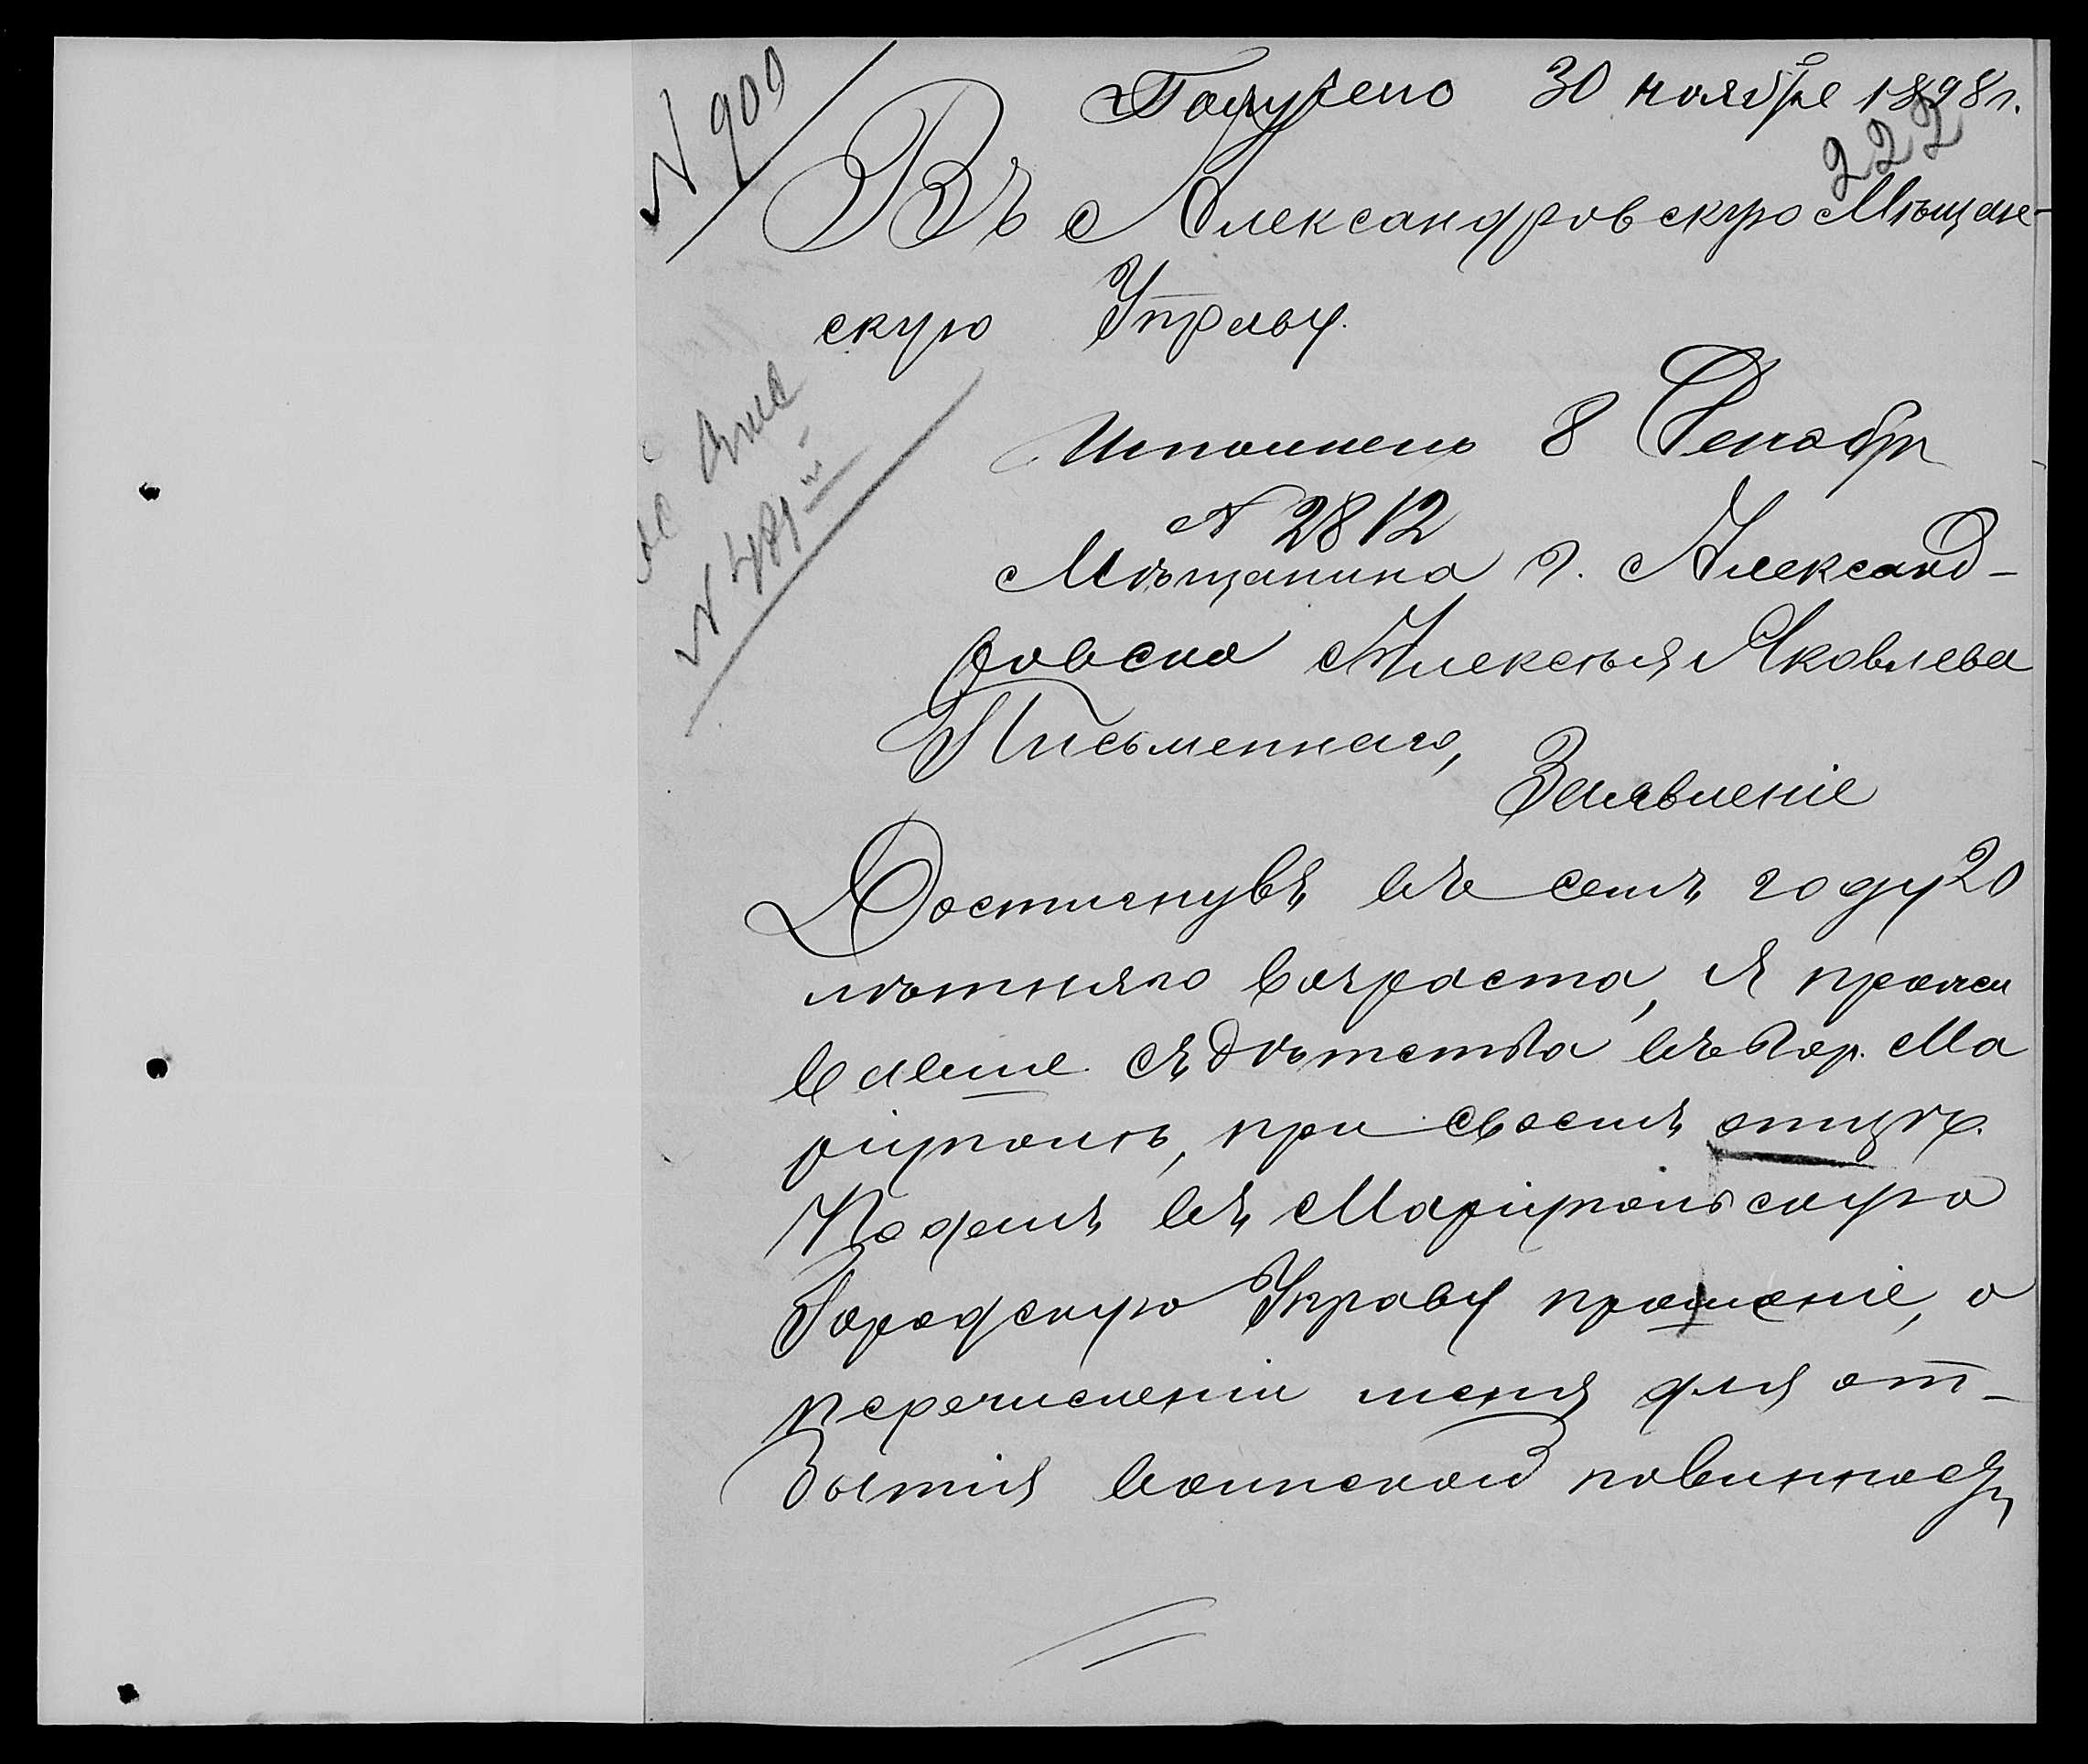 N 900
Получено 30 ноября 1898 г.
222
Въ Александровскую Мѣщан-
скую Управу.
N 481
Исполнено 8 Декабр
N 2812
Мѣщанина г. Александ-
ровска Алексѣя Яковлева
Письменнаго,
Заявленіе
Достигнувъ въ семъ году 20
лѣтняго возраста, я прожи
вавше съ дѣтства въ гор. Ма
ріуполѣ, при своемъ отцѣ.
Подалъ въ Маріупольскую
Городскую Управу прошеніе, о
перечисленіи меня для от-
бытія воинской повинност